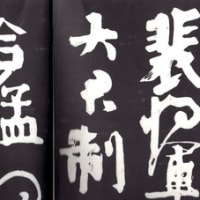 裴将軍
大君制
合猛